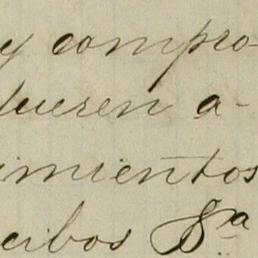 y compro-
fueren a-
imientos
cibos Sª